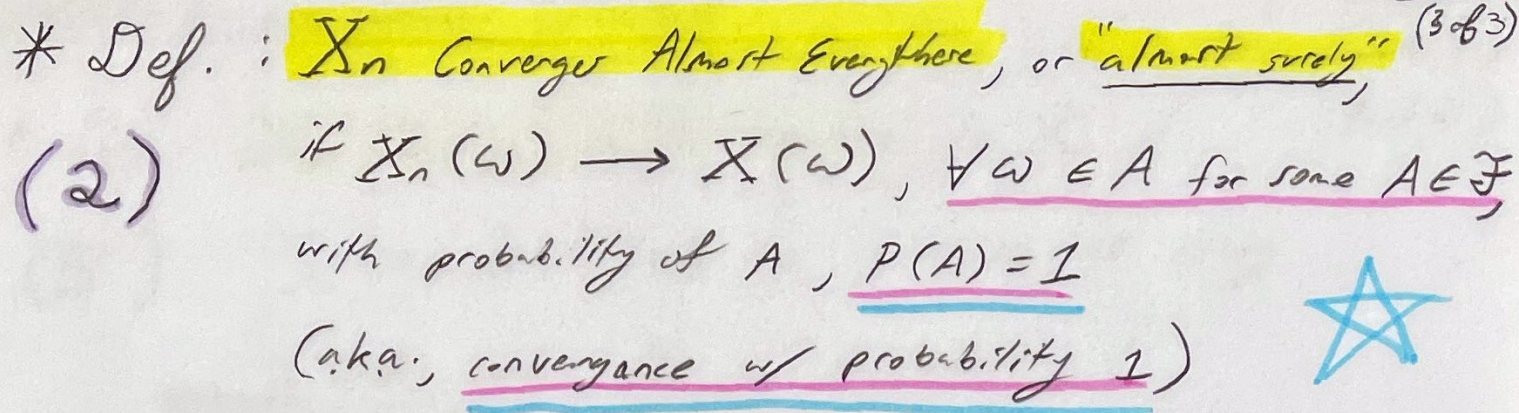 * Def. : Xn Converges Almost Everywhere, or "almost surely", (3 of 3)
(2) if Xn(ω) → X(ω), ∀ω ∈ A for some A ∈ ℱ,
with probability of A, P(A) = 1
(a.k.a., convergance w/ probability 1)